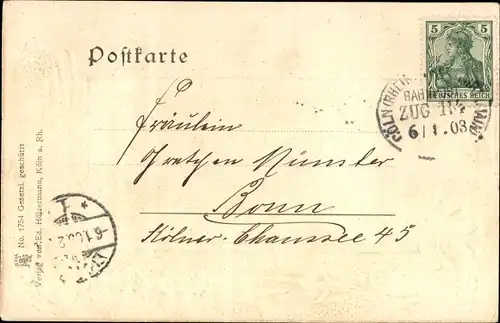 Postkarte
5 5
DEUTSCHES REICH
CÖLN (RHEIN)
BAH
ZUG 11
6/1.03
Fräulein
Gretchen Münster
Bonn
Kölner Chaussee 45
No. 1754 Gesetzl. geschützt
Verlag von Ed. Hülsermann, Köln a. Rh.
6.1.03.